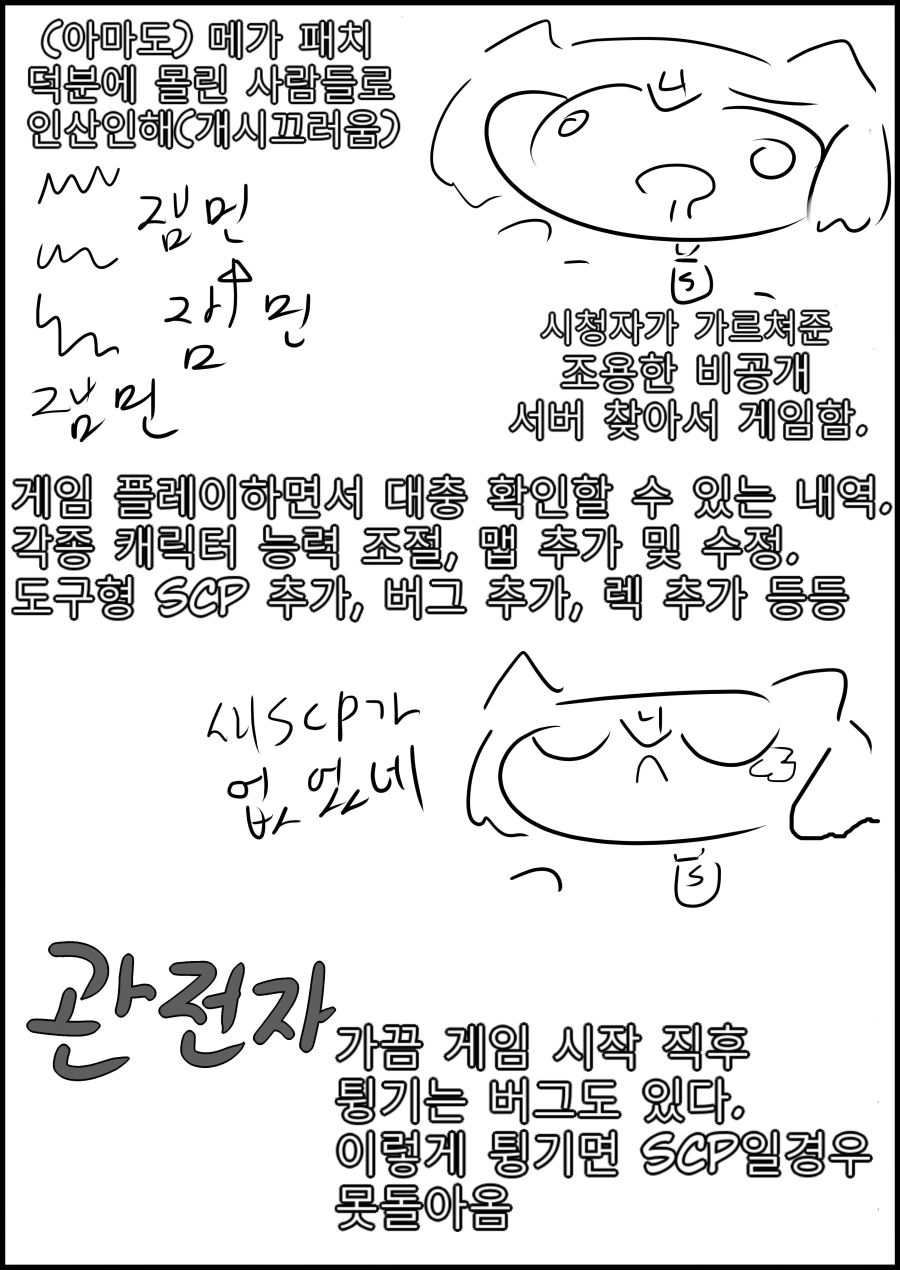 (아마도) 메가 패치
덕분에 몰린 사람들로
인산인해(개시끄러움)
잼민
잼민
잼민
시청자가 가르쳐준
조용한 비공개
서버 찾아서 게임함.
게임 플레이하면서 대충 확인할 수 있는 내역.
각종 캐릭터 능력 조절, 맵 추가 및 수정.
도구형 SCP 추가, 버그 추가, 렉 추가 등등
새SCP가
없었네
관전자
가끔 게임 시작 직후
튕기는 버그도 있다.
이렇게 튕기면 SCP일경우
못돌아옴